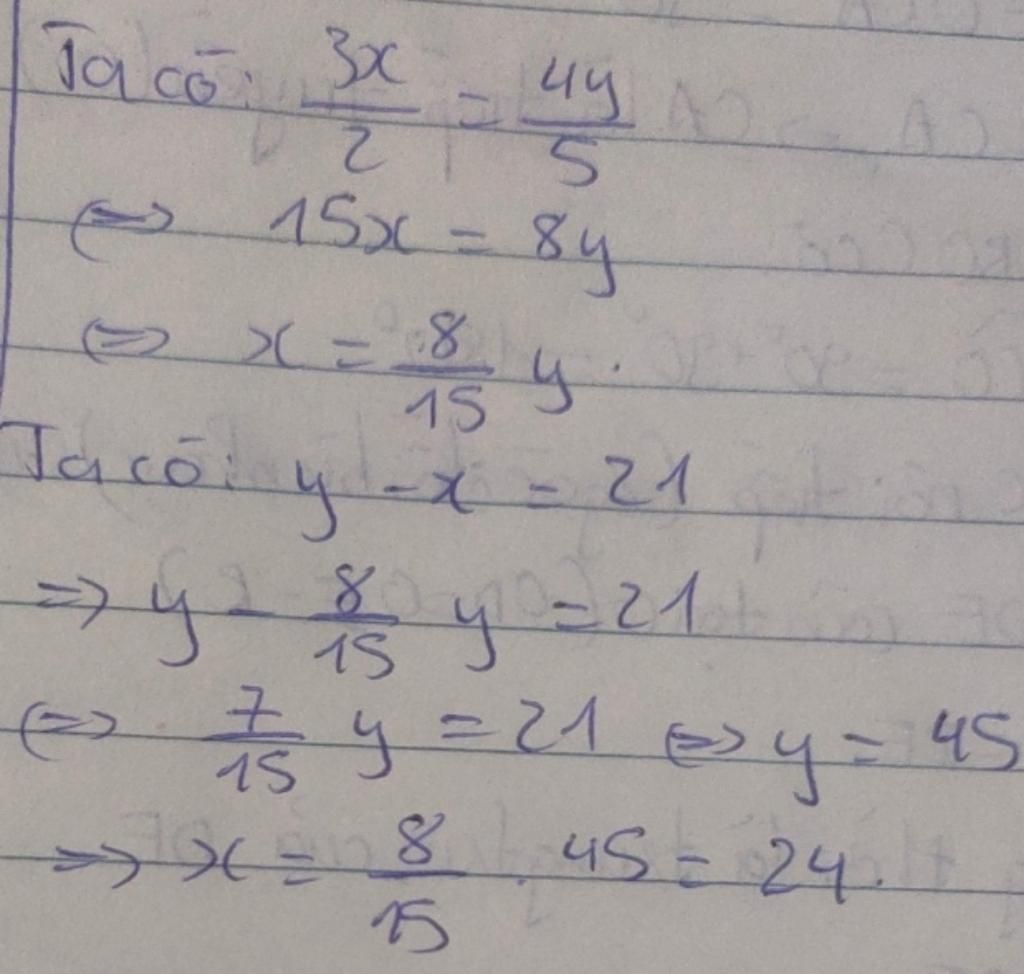 Ta có: 3x/2 = 4y/5
⇔ 15x = 8y
⇔ x = 8/15 y.
Ta có: y - x = 21
⇒ y - 8/15 y = 21
⇔ 7/15 y = 21 ⇔ y = 45
⇒ x = 8/15 . 45 = 24.